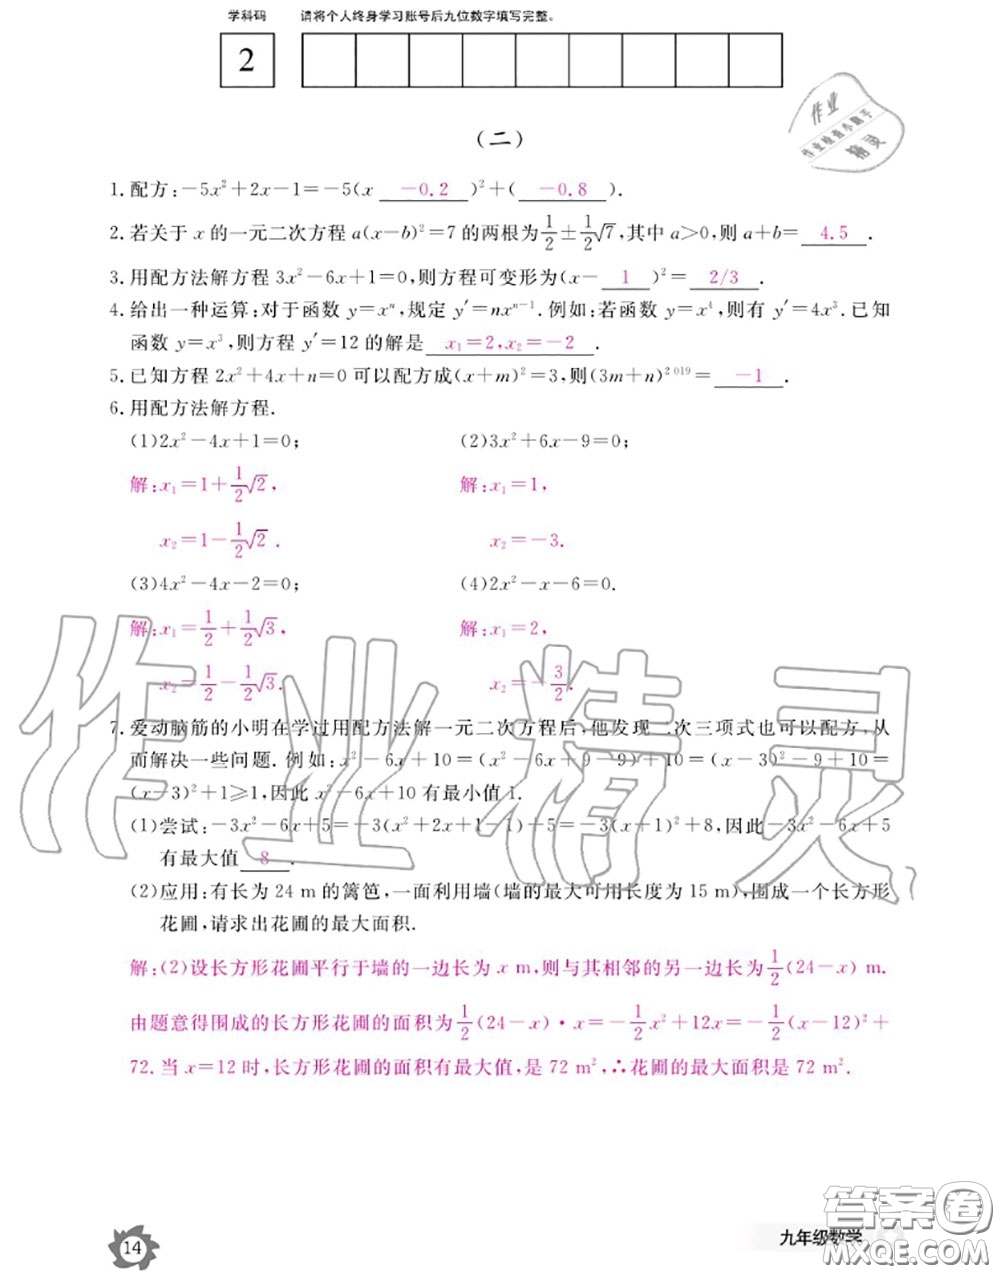 学科码　请将个人终身学习账号后九位数字填写完整。
2
作业
作业检查小助手
精灵
(二)
1.配方:-5x²+2x-1=-5(x -0.2 )²+( -0.8 ).
2.若关于 x 的一元二次方程 a(x-b)²=7 的两根为 1/2±1/2√7,其中 a>0,则 a+b= 4.5 .
3.用配方法解方程 3x²-6x+1=0,则方程可变形为(x- 1 )²= 2/3 .
4.给出一种运算:对于函数 y=xⁿ,规定 y′=nxⁿ⁻¹.例如:若函数 y=x⁴,则有 y′=4x³.已知
函数 y=x³,则方程 y′=12 的解是 x₁=2,x₂=-2 .
5.已知方程 2x²+4x+n=0 可以配方成(x+m)²=3,则(3m+n)²⁰¹⁹= -1 .
6.用配方法解方程.
(1)2x²-4x+1=0;　(2)3x²+6x-9=0;
解:x₁=1+1/2√2,　解:x₁=1,
x₂=1-1/2√2 .　x₂=-3.
(3)4x²-4x-2=0;　(4)2x²-x-6=0.
解:x₁=1/2+1/2√3,　解:x₁=2,
x₂=1/2-1/2√3.　x₂=-3/2.
7.爱动脑筋的小明在学过用配方法解一元二次方程后,他发现二次三项式也可以配方,从
而解决一些问题.例如:x²-6x+10=(x²-6x+9-9)+10=(x-3)²-9+10=
(x-3)²+1≥1,因此 x²-6x+10 有最小值 1.
(1)尝试:-3x²-6x+5=-3(x²+2x+1-1)+5=-3(x+1)²+8,因此-3x²-6x+5
有最大值 8 .
(2)应用:有长为 24 m 的篱笆,一面利用墙(墙的最大可用长度为 15 m),围成一个长方形
花圃,请求出花圃的最大面积.
解:(2)设长方形花圃平行于墙的一边长为 x m,则与其相邻的另一边长为1/2(24-x) m.
由题意得围成的长方形花圃的面积为1/2(24-x)·x=-1/2x²+12x=-1/2(x-12)²+
72.当 x=12 时,长方形花圃的面积有最大值,是 72 m²,∴花圃的最大面积是 72 m².
作业精灵
14
九年级数学
答案圈
MXQE.COM